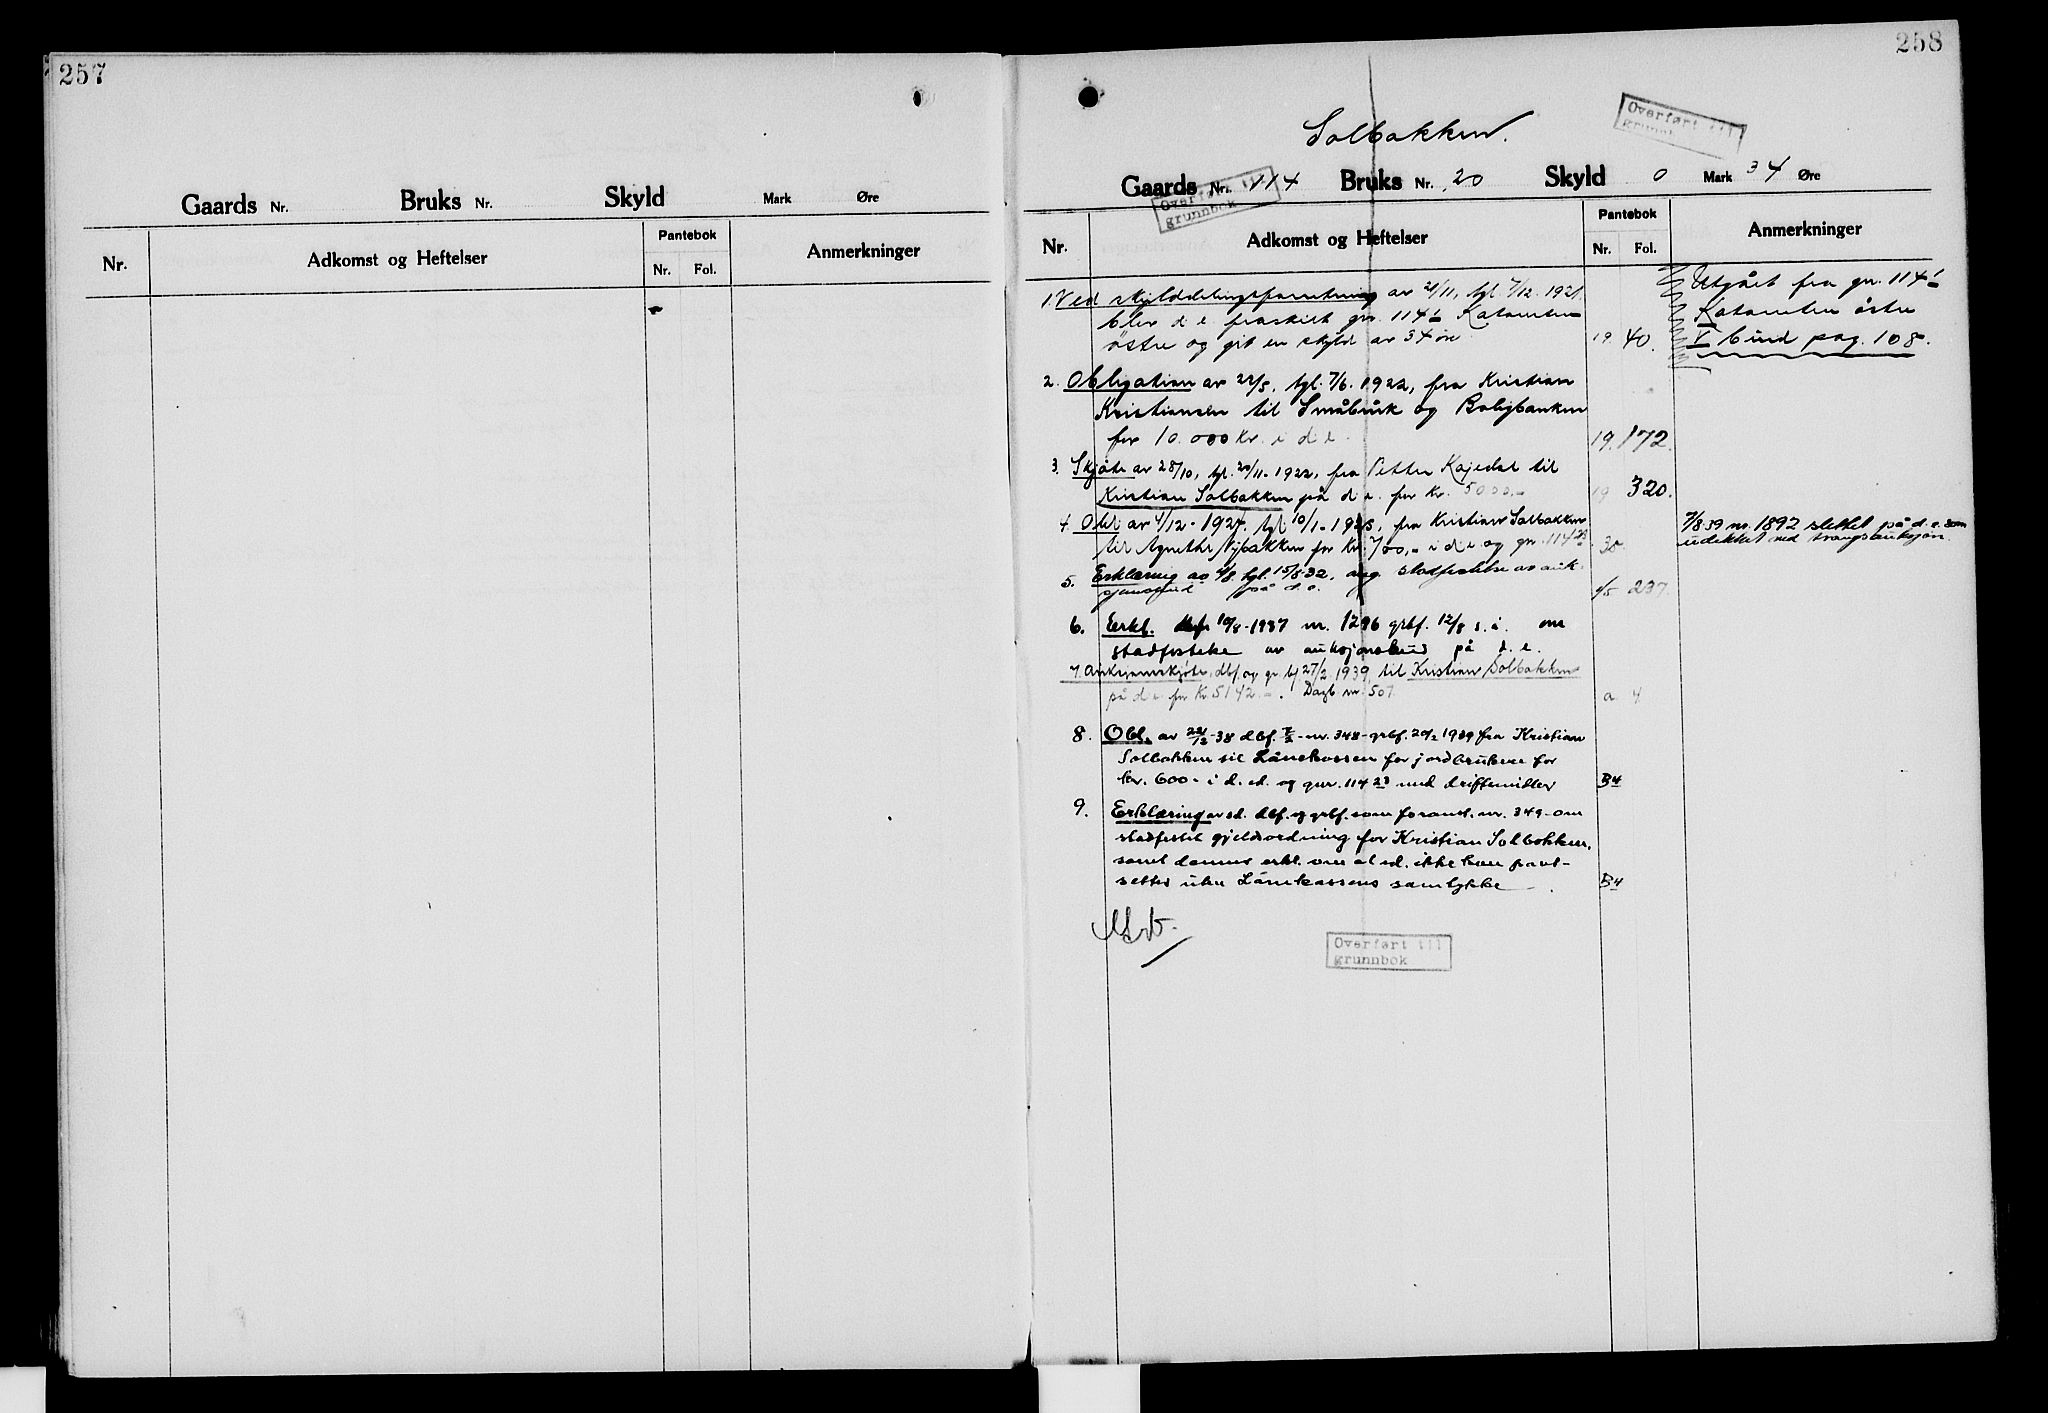 257
Gaards Nr. Bruks Nr. Skyld Mark Øre
Nr. Adkomst og Heftelser Pantebok Anmerkninger
Nr. Fol.
258
Solbakken.
Overført til
grunnbok
Gaards Nr. 114 Bruks Nr. 20 Skyld 0 Mark 34 Øre
Overført til
grunnbok
Nr. Adkomst og Heftelser Pantebok Anmerkninger
Nr. Fol.
1 Ved skylddelingsforretning av 21/11, tgl. 7/12. 1921.
blev d. e. fraskilt gnr. 114/1
østre og git en skyld av 34 øre 19. 40.
Utgået fra gn. 114/1
østre
V bind pag. 108.
2. Obligation av 22/5, tgl. 7/6. 1922, fra Kristian
Kristiansen til Småbruk og Boligbanken
for 10.000 Kr. i d e. 19. 172.
3. Skjøte av 28/10, tgl. 20/11. 1922, fra Petter til
Kristian Solbakken på d. e. for Kr. 5000.- 19 320.
4. Obl. av 4/12 - 1927. tgl. 10/1 - 1928, fra Kristian Solbakken
til Agnethe Nybakken for Kr. 700,- i d e og gn. 114/23 30.
7/8 39 nr. 1892 slettet på d. e. som
udekket ved tvangsauksjon.
5. Erklæring av 4/8 tgl. 15/8 32, ang. stadfestelse av auk-
sjonsbud på d. e. 25 237.
6. Erkl. dbf. 10/8 - 1937 nr. 1296 grbf. 12/8 s. å. om
stadfestelse av auksjonsbud på d. e.
7. Auksjonsskjøte, dbf. og gr. bf. 27/2. 1939, til Kristian Solbakken
på d e for Kr. 5142.-. Dagb. nr. 507 a 4
8. Obl. av 22/12-38 dbf. 7/2 - nr. 348 - grbf. 20/2 1939 fra Kristian
Solbakken til Lånekassen for jordbrukere for
kr. 600.- i d. ed. og gnr. 114/23 med driftsmidler B4
9. Erklæring av sd. dbf. og grbf. som forand. nr. 349 - om
stadfestet gjeldsordning for Kristian Solbakken,
samt dennes erkl. om at ed. ikke kan pant-
settes uten Lånekassens samtykke B4
Overført til
grunnbok